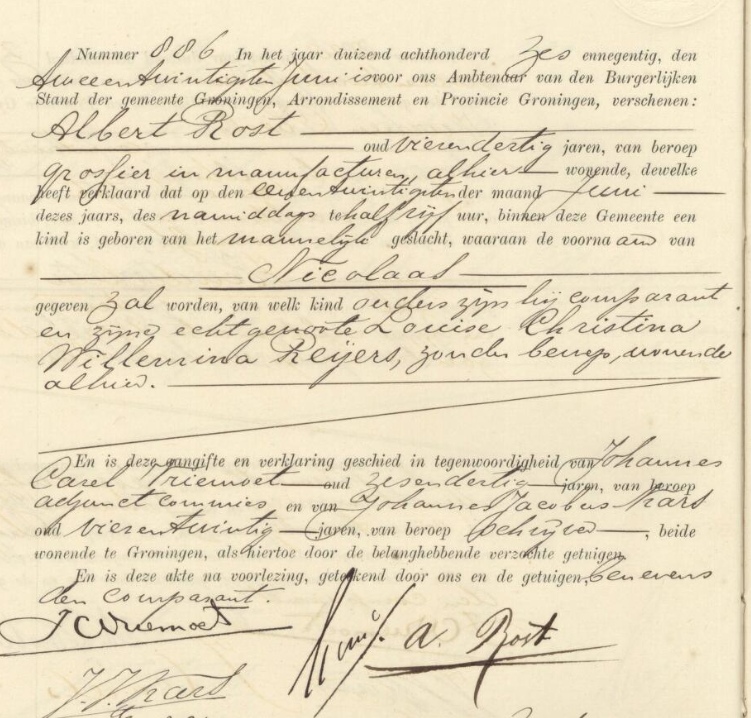 Nummer 886 In het jaar duizend achthonderd zes ennegentig, den
tweeentwintigsten Juni is voor ons Ambtenaar van den Burgerlijken
Stand der gemeente Groningen, Arrondissement en Provincie Groningen, verschenen:
Albert Rost
oud vierendertig jaren, van beroep
grossier in manufacturen, alhier wonende, dewelke
heeft verklaard dat op den eenentwintigsten der maand Juni
dezes jaars, des namiddags te half vijf uur, binnen deze Gemeente een
kind is geboren van het mannelijk geslacht, waaraan de voornaam van
Nicolaas
gegeven zal worden, van welk kind ouders zijn hij comparant
en zijne echtgenoote Louise Christina
Willemina Reijers, zonder beroep, wonende
alhier.
En is deze aangifte en verklaring geschied in tegenwoordigheid van Johannes
Carel Vriemoet oud zesendertig jaren, van beroep
adjunct commies en van Johannes Jacobus Kars
oud vierentwintig jaren, van beroep schrijver, beide
wonende te Groningen, als hiertoe door de belanghebbende verzochte getuigen
En is deze akte na voorlezing, geteekend door ons en de getuigen, benevens
den comparant.
JCVriemoet
A. Rost
J.J. Kars